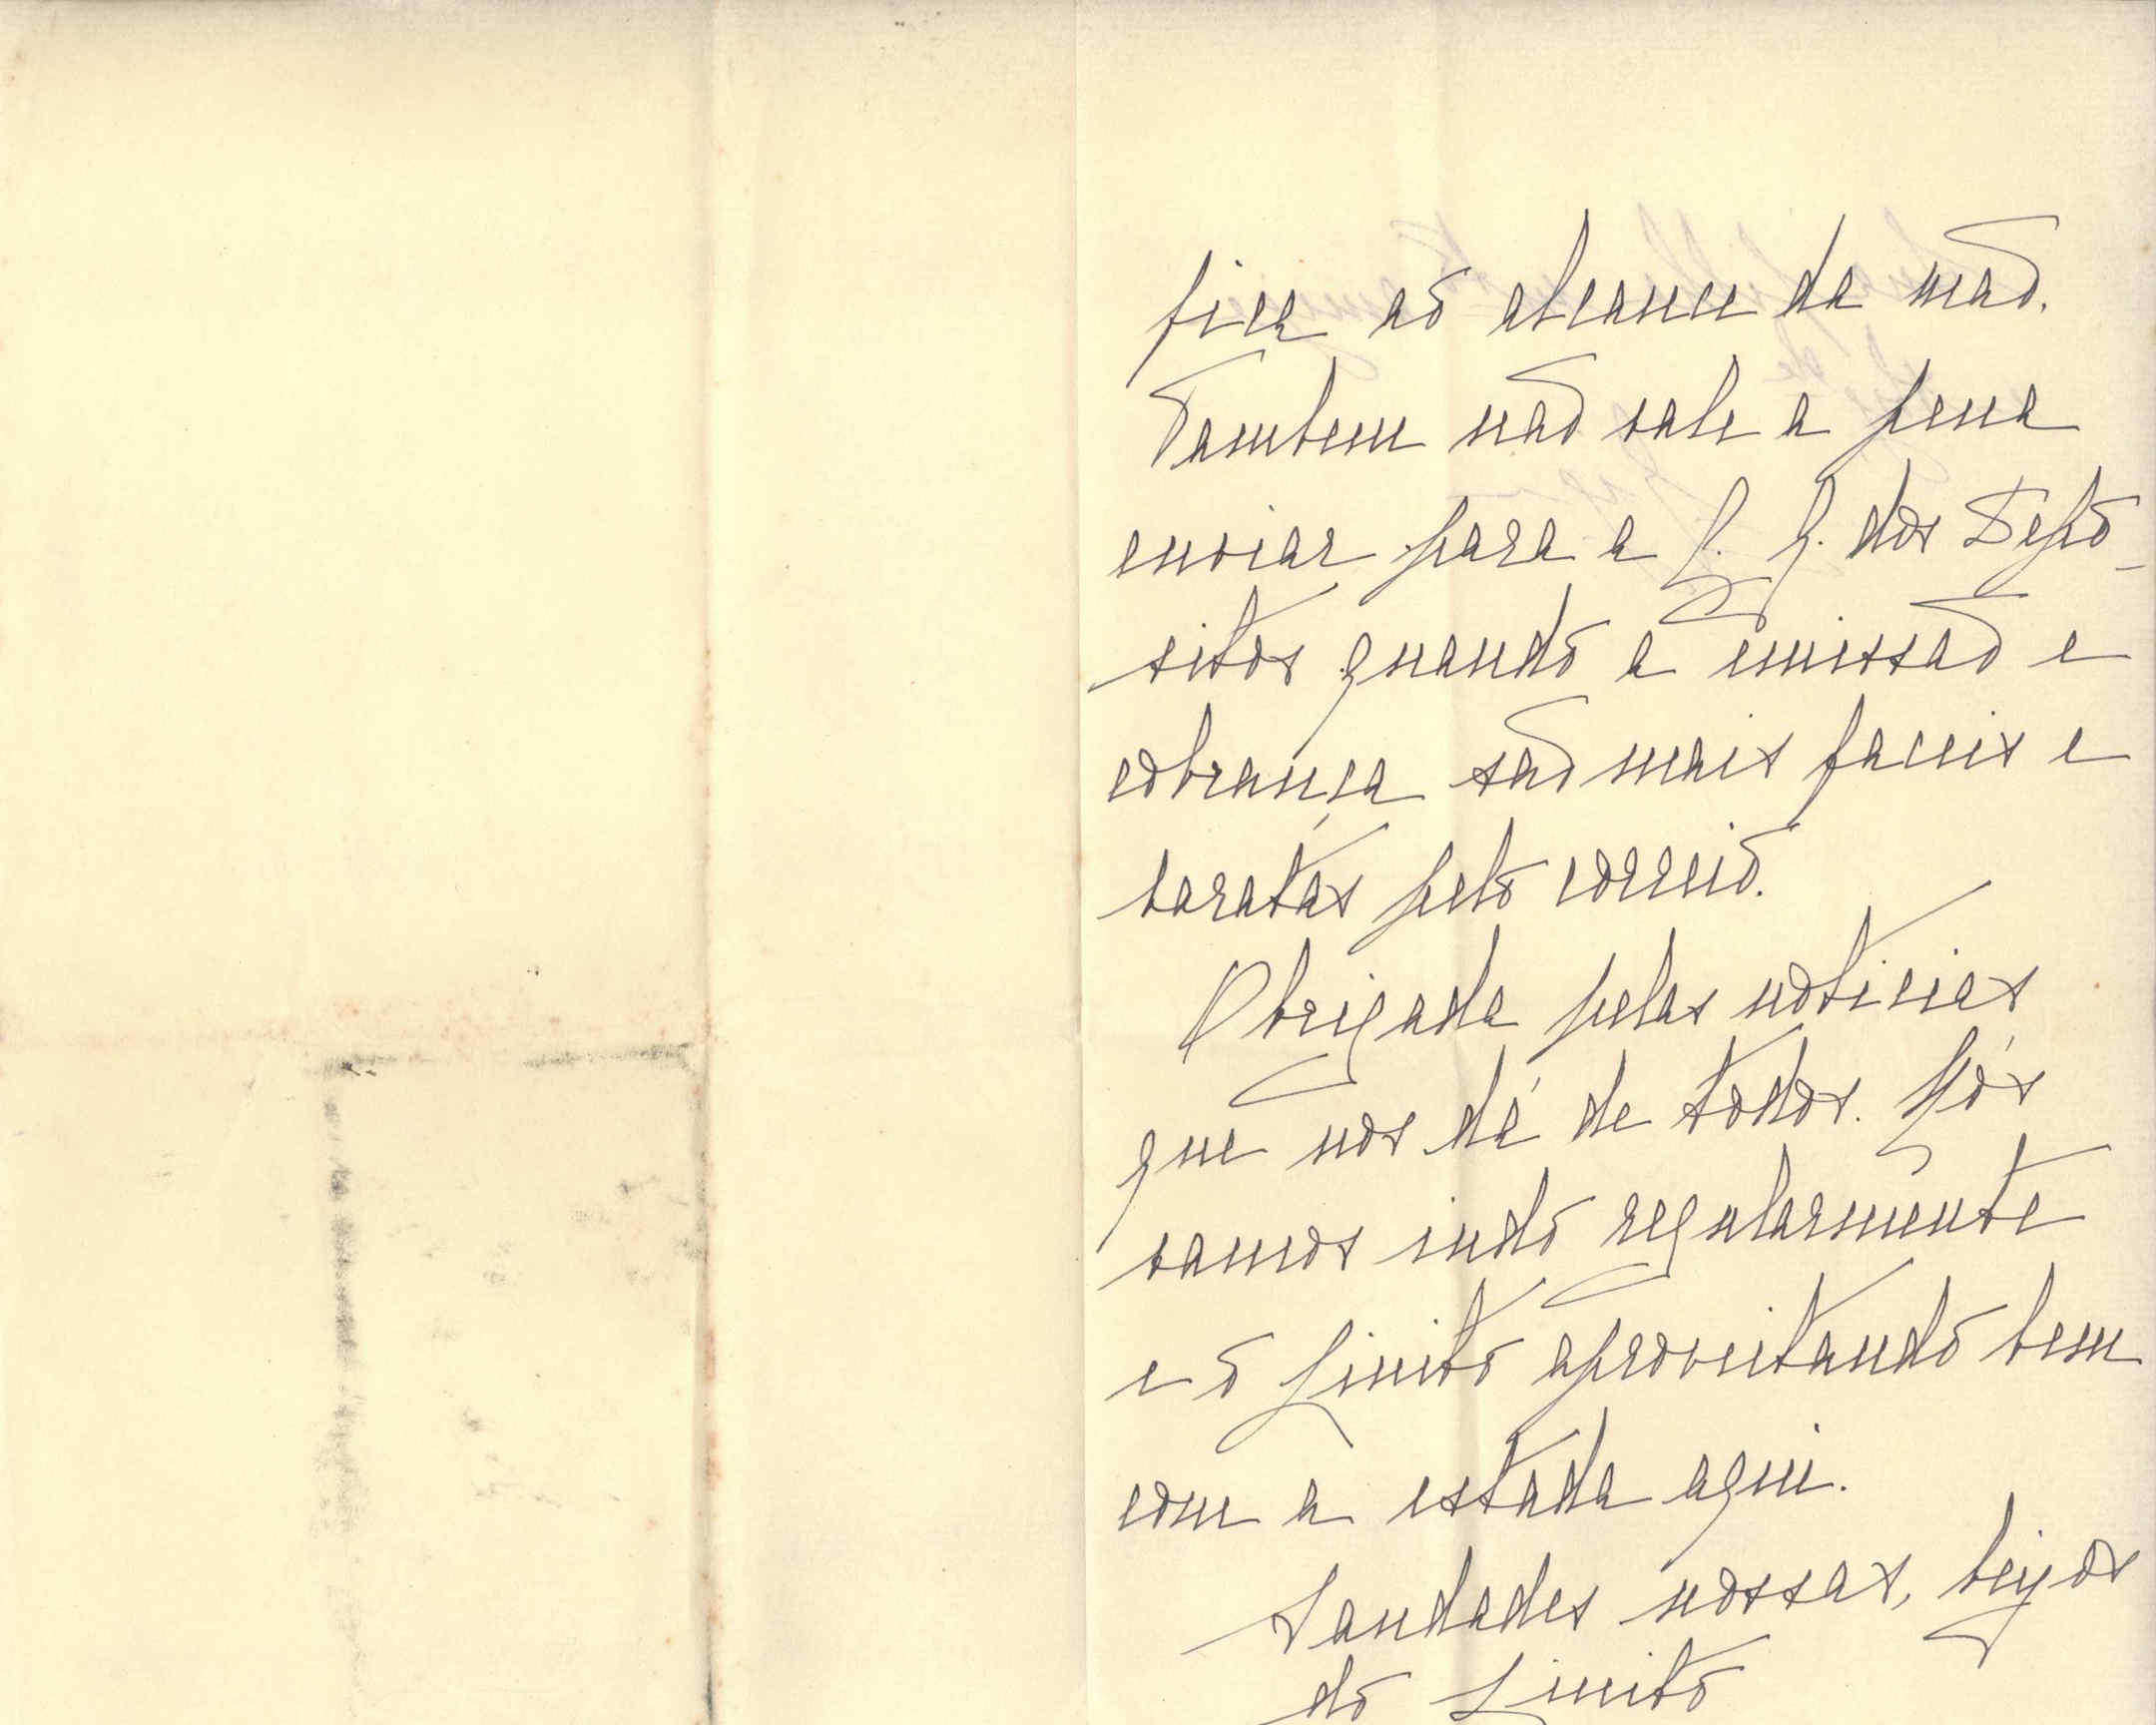 fica ao alcance da mão.
Tambem não vale a pena
enviar para a C. G. dos Depo-
sitos quando a emissão e
cobrança são mais faceis e
baratas pelo correio.
Obrigada pelas noticias
que nos dá de todos. Nós
vamos indo regularmente
e o aproveitando bem
com a estada aqui.
Saudades nossas, beijos
do